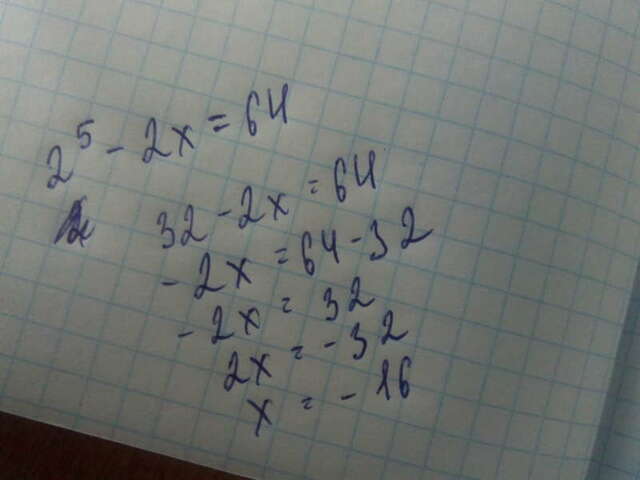 2⁵ - 2x = 64
32 - 2x = 64
- 2x = 64 - 32
- 2x = 32
2x = - 32
x = - 16